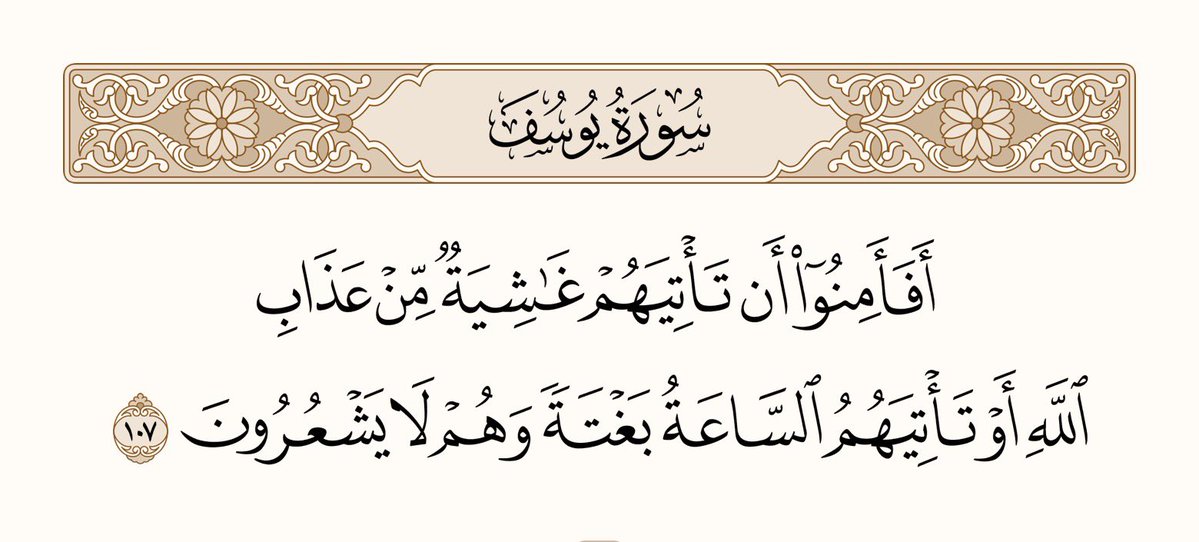 سُورَةُ يُوسُفَ
أَفَأَمِنُوٓا۟ أَن تَأْتِيَهُمْ غَـٰشِيَةٌ مِّنْ عَذَابِ
ٱللَّهِ أَوْ تَأْتِيَهُمُ ٱلسَّاعَةُ بَغْتَةً وَهُمْ لَا يَشْعُرُونَ ١٠٧